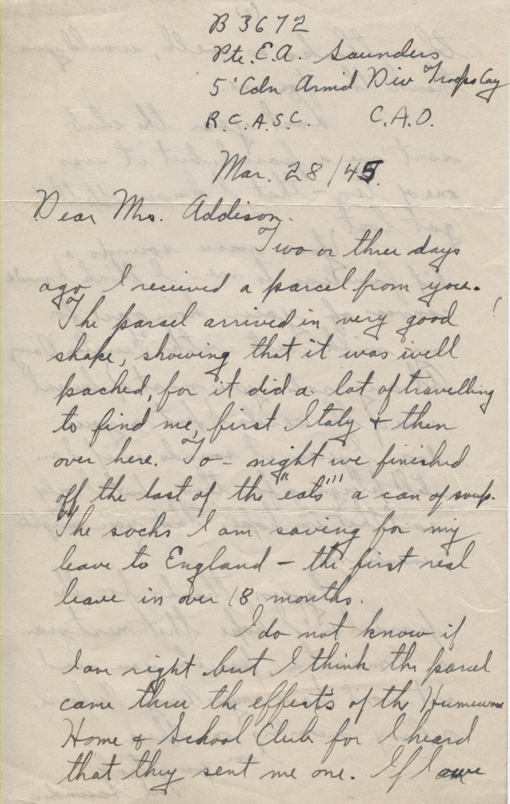 B3672
Pte. E.A. Saunders
5' Cdn Armd Div Troops Coy
R.C.A.S.C. C.A.O.
Mar. 28/45.
Dear Mrs. Addison.
Two or three days
ago I received a parcel from you.
The parsel arrived in very good
shape, showing that it was well
packed, for it did a lot of travelling
to find me, first Italy & then
over here. To-night we finished
off the last of the "eats" a can of soup.
The socks I am saving for my
leave to England - the first real
leave in over 18 months.
I do not know if
I am right but I think the parcel
came thru the effects of the Humewood
Home & School Club for I heard
that they sent me one. If I owe